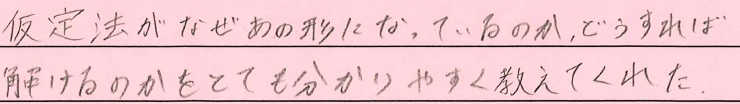 仮定法がなぜあの形になっているのか、どうすれば
解けるのかをとても分かりやすく教えてくれた.